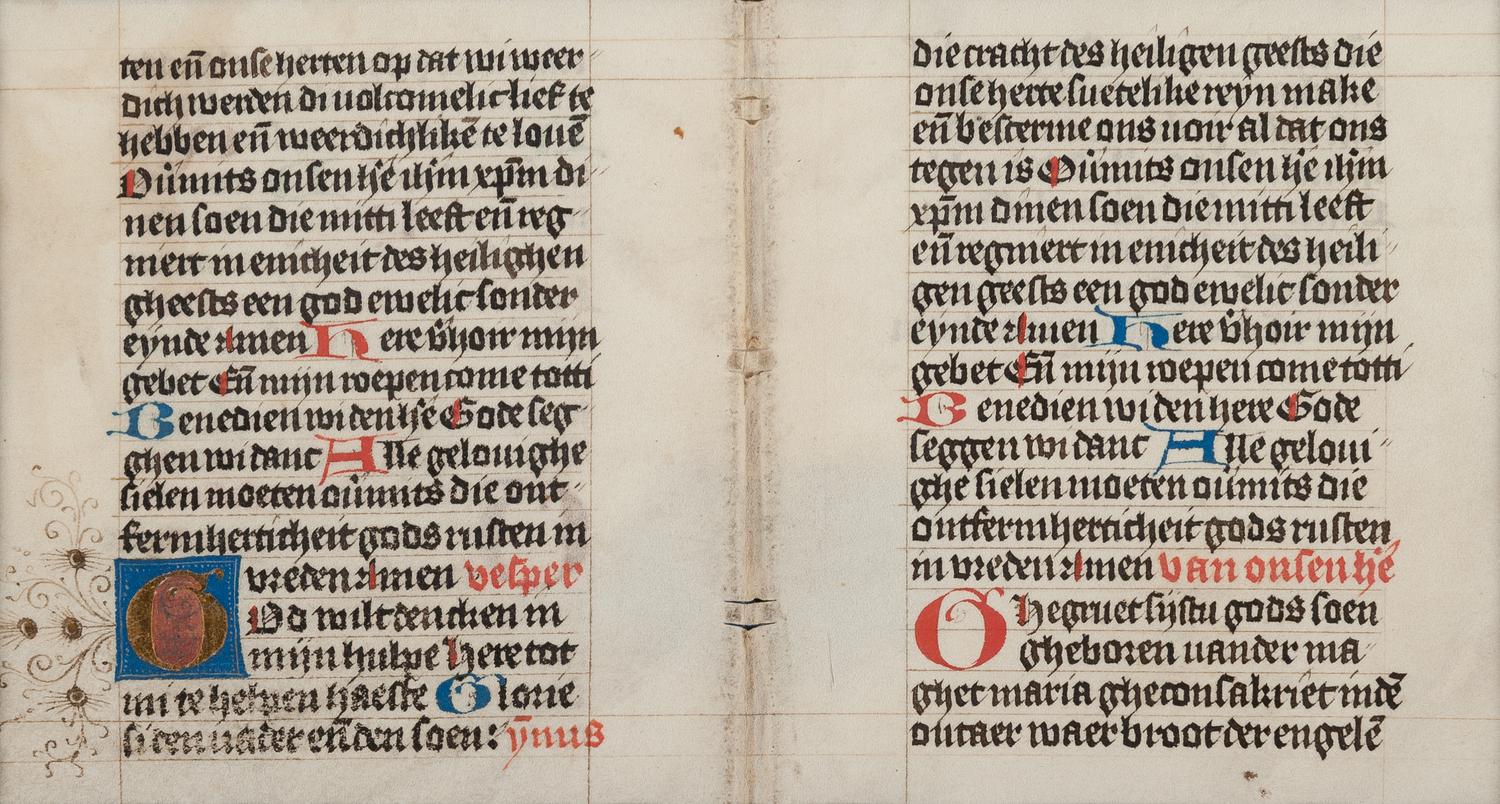 ten en̄ onse herten op dat wi weer-
dich werden di volcomelic lief te
hebben en̄ weerdichlikē te louē
Ou̇mits onsen hē ihm xp̄m di-
nen soen die mitti leeft en̄ reg-
niert in enicheit des heilighen
gheests een god ewelic sonder
eynde Amen Here v̄hoir mijn
gebet En̄ mijn roepen come totti
Benedien wi den hē Gode seg-
ghen wi danc Alle gelouighe
sielen moeten ou̇mits die ont-
fermherticheit gods rusten in
vreden Amen vesper
God wilt dencken in
mijn hulpe Here tot
mi te helpen haeste Glorie
si den vader en̄ den soen: ȳnus
die cracht des heiligen geests die
onse herte suetelike reyn make
en̄ bescerme ons voir al dat ons
tegen is Ou̇mits onsen hē ihm
xp̄m dinen soen die mitti leeft
en̄ regniert in enicheit des heili-
gen geests een god ewelic sonder
eynde Amen Here v̄hoir mijn
gebet En̄ mijn roepen come totti
Benedien wi den here Gode
seggen wi danc Alle geloui-
ghe sielen moeten ou̇mits die
ontfermherticheit gods rusten
in vreden Amen van onsen hē
O Ghegruet sijstu gods soen
gheboren vander ma-
ghet maria gheconsakriet indē
outaer waer broot der engelē